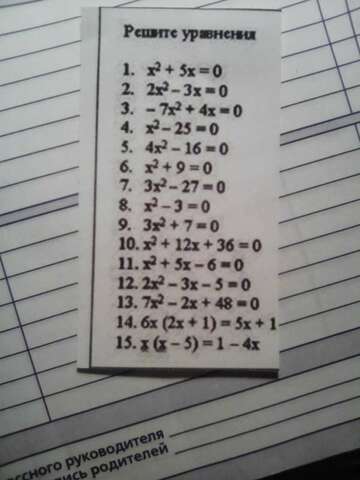 Решите уравнения
1. x² + 5x = 0
2. 2x² – 3x = 0
3. – 7x² + 4x = 0
4. x² – 25 = 0
5. 4x² – 16 = 0
6. x² + 9 = 0
7. 3x² – 27 = 0
8. x² – 3 = 0
9. 3x² + 7 = 0
10. x² + 12x + 36 = 0
11. x² + 5x – 6 = 0
12. 2x² – 3x – 5 = 0
13. 7x² – 2x + 48 = 0
14. 6x (2x + 1) = 5x + 1
15. x (x – 5) = 1 – 4x
ссного руководителя
ись родителей